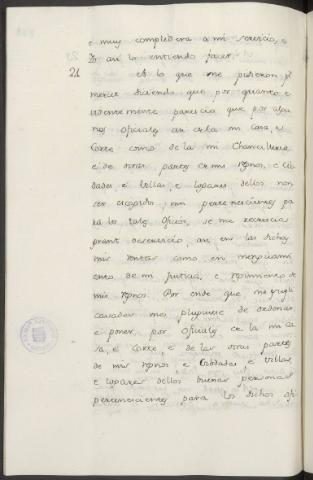 è muy compledera a mi servicio, è
Yo ansi lo entiendo facer.
21 A lo que me pidieron p.r
merced diciendo que por quanto e
videntemente parecia que por algu
nos oficiales ansi en la mi Casa, è
Corte como de la mi Chancilleria
è de otras partes en mis regnos, è Cib
dades è Villas è logares dellos non
ser escogidos, nin pertenecientes pa
ra los tales oficios, se me recrecia
grant deservicio, ansi en las dichas
mis rentas como en menguami
ento de mi justicia, è regimiento de
mis regnos. Por ende que me supli
cavades me pluguiese de ordenar
è poner por oficiales en la mi ca
sa, è Corte, è de las otras partes
de mis regnos, è Cibdades, è Villas
è logares dellos buenas personas
pertenecientes para los dichos ofi